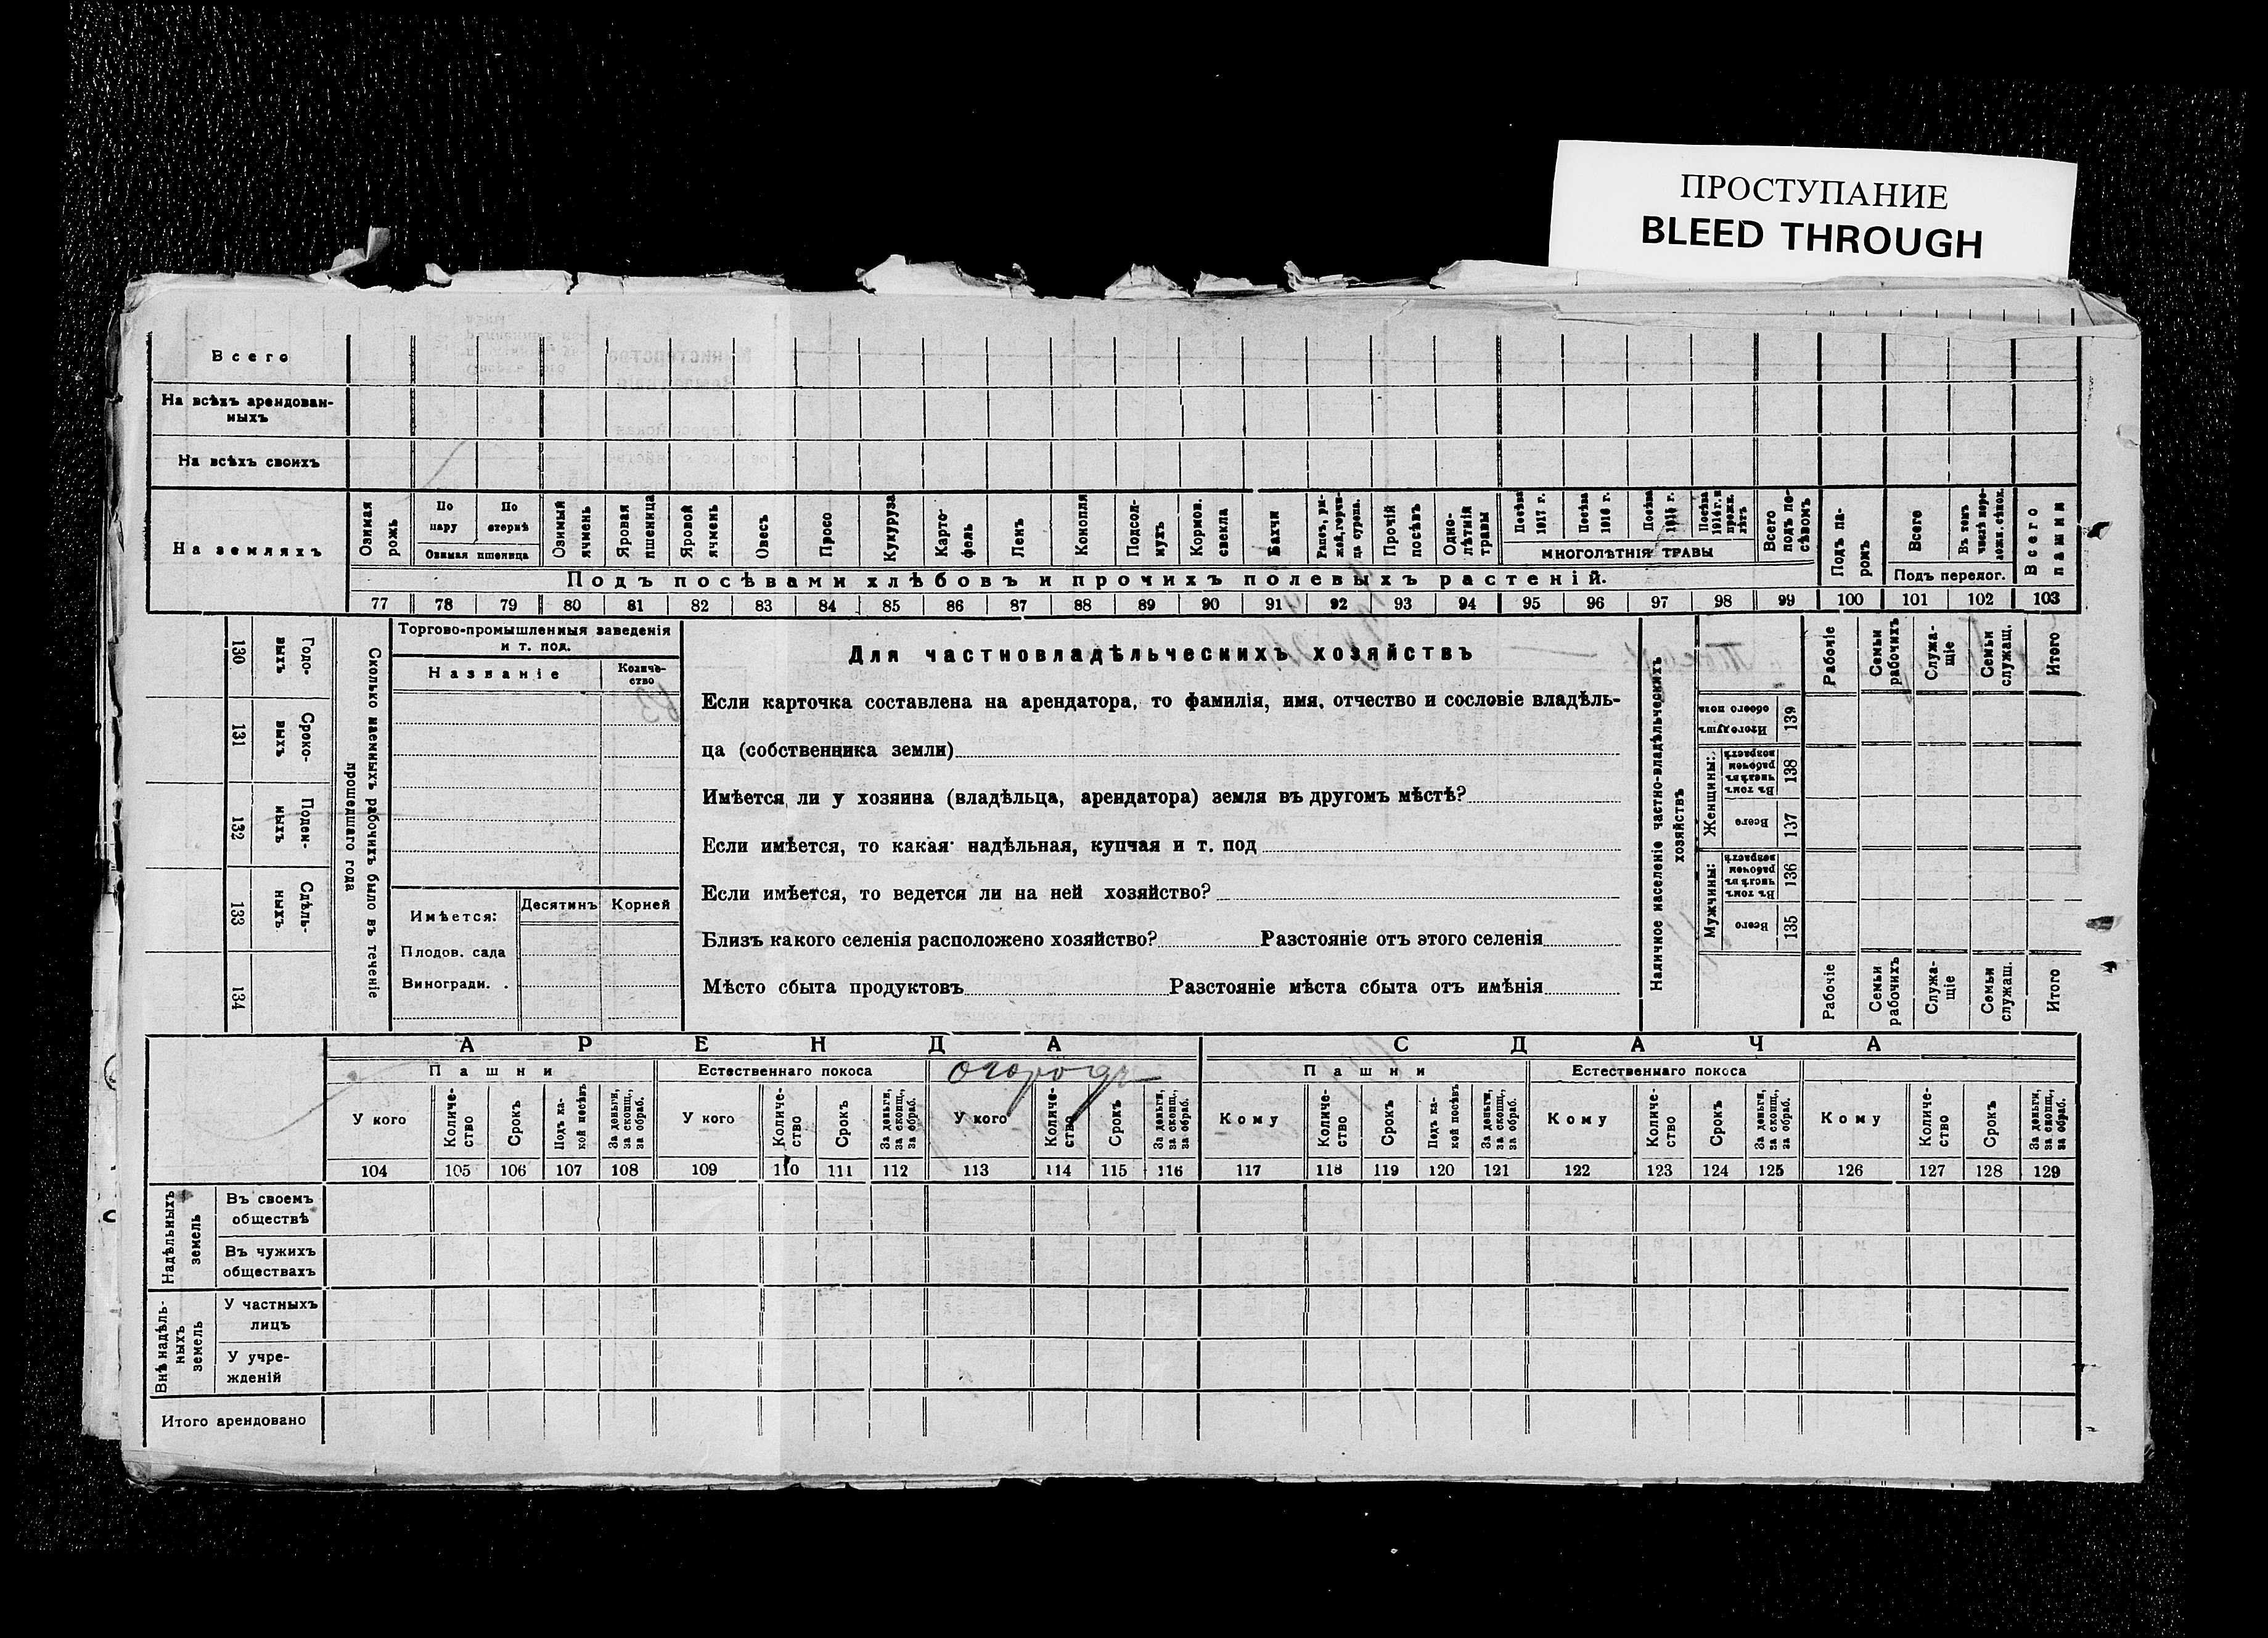 ПРОСТУПАНИЕ
BLEED THROUGH
Всего
На всѣхъ арендован-
ныхъ
На всѣхъ своихъ
На земляхъ
Озимая рожь
По пару
По стернѣ
Озимая пшеница
Озимый ячмень
Яровая пшеница
Яровой ячмень
Овесъ
Просо
Кукуруза
Карто-
фель
Ленъ
Конопля
Подсол-
нухъ
Кормов. свекла
Бахчи
Рапсъ, ры-
жей, горчи-
ца сурепа.
Прочій посѣвъ
Одно-
лѣтнія травы
Посѣва 1917 г.
Посѣва 1916 г.
Посѣва 1915 г.
Посѣва 1914 г. и прежн. лѣтъ
МНОГОЛѢТНІЯ ТРАВЫ
Всего подъ по-
сѣвомъ
Подъ па-
ромъ
Всего
Въ томъ числѣ пере-
ложн. сѣнок.
Подъ перелог.
Всего пашни
Подъ посѣвами хлѣбовъ и прочихъ полевыхъ растеній.
77 78 79 80 81 82 83 84 85 86 87 88 89 90 91 92 93 94 95 96 97 98 99 100 101 102 103
130 Годо-
выхъ
131 Сроко-
выхъ
132 Поден-
ныхъ
133 Сдѣль-
ныхъ
134
Сколько наемныхъ рабочихъ было въ теченіе
прошедшаго года
Торгово-промышленныя заведенія
и т. под.
Названіе
Количе-
ство
Имѣется:
Десятинъ
Корней
Плодов. сада
Виногради. .
Для частновладѣльческихъ хозяйствъ
Если карточка составлена на арендатора, то фамилія, имя, отчество и сословіе владѣль-
ца (собственника земли)
Имѣется ли у хозяина (владѣльца, арендатора) земля въ другомъ мѣстѣ?
Если имѣется, то какая: надѣльная, купчая и т. под
Если имѣется, то ведется ли на ней хозяйство?
Близъ какого селенія расположено хозяйство? Разстояніе отъ этого селенія
Мѣсто сбыта продуктовъ Разстояніе мѣста сбыта отъ имѣнія
Наличное населеніе частно-владѣльческихъ
хозяйствъ
Рабочіе
Семьи рабочихъ
Служа-
щіе
Семьи служащ.
Итого
Итого душъ обоего пола
139
Женщины:
Въ томъ числѣ въ рабочемъ возрастѣ
138
Всего
137
Мужчины:
Въ томъ числѣ въ рабочемъ возрастѣ
136
Всего
135
Рабочіе
Семьи рабочихъ
Служа-
щіе
Семьи служаш.
Итого
АРЕНДА
СДАЧА
Пашни
Естественнаго покоса
огородъ
Пашни
Естественнаго покоса
У кого
Количе-
ство
Срокъ
Подъ ка-
кой посѣвъ
За деньги, за скопщ., за обраб.
У кого
Количе-
ство
Срокъ
За деньги, за скопщ., за обраб.
У кого
Количе-
ство
Срокъ
За деньги, за скопщ., за обраб.
Кому
Количе-
ство
Срокъ
Подъ ка-
кой посѣвъ
За деньги, за скопщ., за обраб.
Кому
Количе-
ство
Срокъ
За деньги, за скопщ., за обраб.
Кому
Количе-
ство
Срокъ
За деньги, за скопщ., за обраб.
104 105 106 107 108 109 110 111 112 113 114 115 116 117 118 119 120 121 122 123 124 125 126 127 128 129
Надѣльныхъ
земель
Въ своемъ
обществѣ
Въ чужихъ
обществахъ
Внѣ надѣль-
ныхъ
земель
У частныхъ
лицъ
У учре-
жденій
Итого арендовано